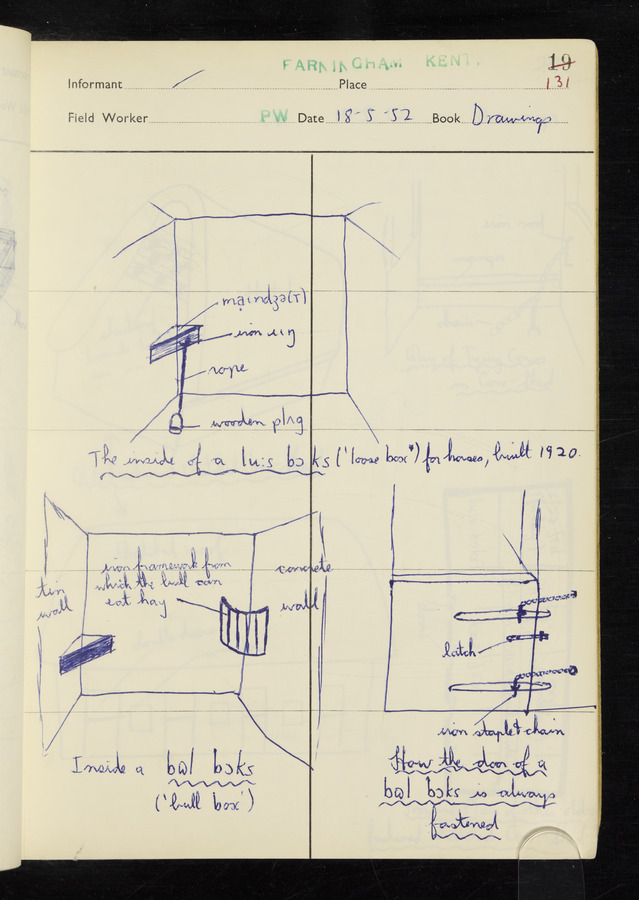 FARNINGHAM KENT.
19
131
Informant
Place
Field Worker
PW
Date 18-5-52
Book Drawings
mạɪndʒə(r)
iron rɪŋ
rope
wooden plʌg
The inside of a luːs bɔks ('loose box') for horses, built 1920.
iron framework from
which the bull can
eat hay
tin
wall
concrete
wall
Inside a bɷl bɔks
('bull box')
latch
iron staple + chain
How the door of a
bɷl bɔks is always
fastened